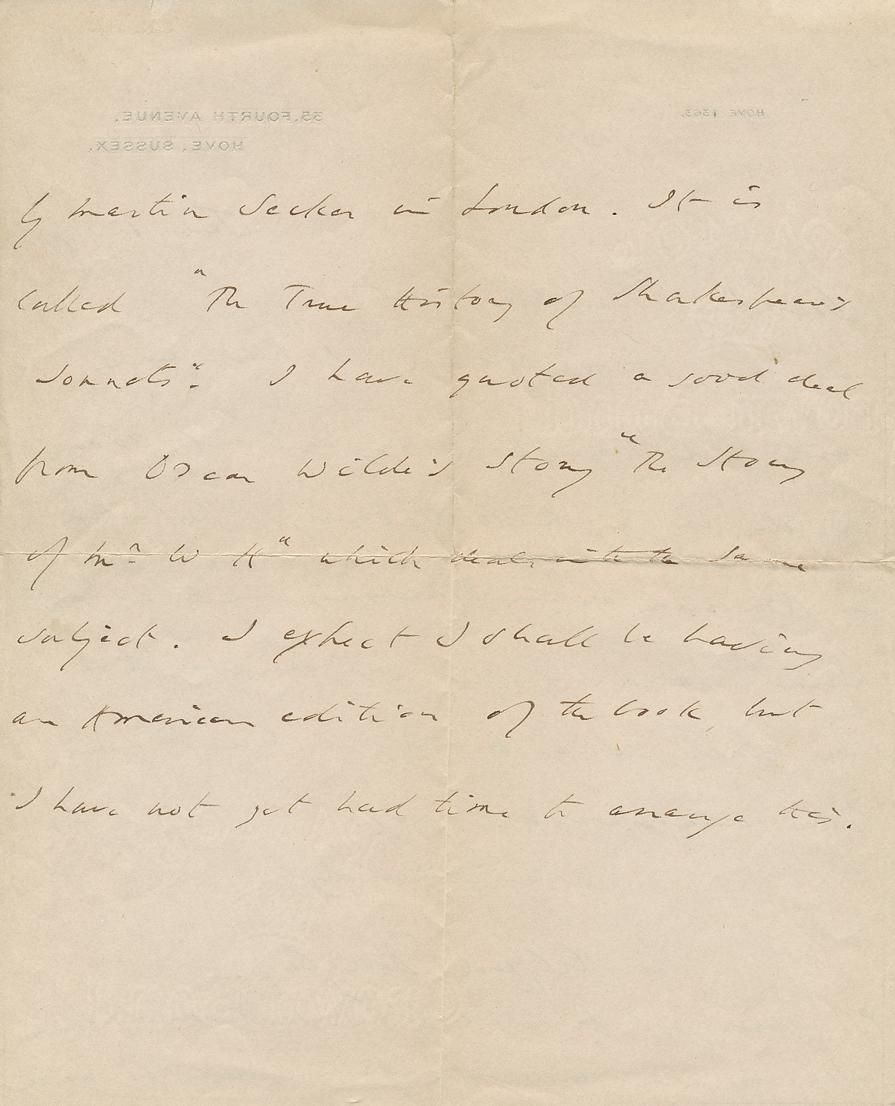 35, FOURTH AVENUE,
HOVE, SUSSEX.
HOVE 1363.
by Martin Secker in London. It is
called "The True History of Shakespeare's
Sonnets". I have quoted a good deal
from Oscar Wilde's Story "The Story
of Mr W H" which deals with the same
subject. I expect I shall be having
an American edition of the book, but
I have not yet had time to arrange this.